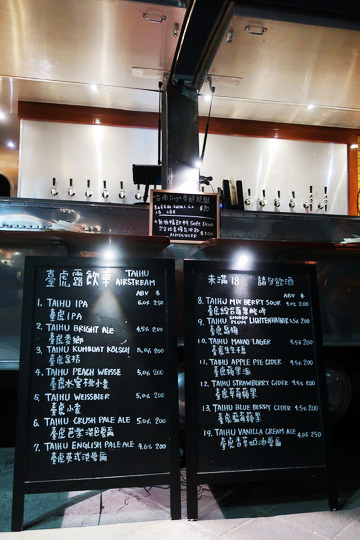 臺虎露飲車 TAIHU AIRSTREAM
ABV $
1. TAIHU IPA 6.0% 250
臺虎IPA
2. TAIHU BRIGHT ALE 4.5% 200
臺虎
3. TAIHU KUMQUAT KÖLSCH 5.0% 200
臺虎金桔
4. TAIHU PEACH WEISSE 5.0% 200
臺虎水蜜桃小麥
5. TAIHU WEISSBIER 5.0% 200
臺虎小麥
6. TAIHU CRUSH PALE ALE 5.0% 200
臺虎芭樂淡色愛爾
7. TAIHU ENGLISH PALE ALE 4.6% 200
臺虎英式淡愛爾
未滿18 請勿飲酒
ABV $
8. TAIHU MIX BERRY SOUR 4.0% 200
臺虎綜合莓果酸啤
9. TAIHU SMOKED PLUM LICHTENHAINER 3.5% 200
臺虎烏梅
10. TAIHU MAKAO LAGER 4.5% 200
臺虎
11. TAIHU APPLE PIE CIDER 4.5% 200
臺虎蘋果派
12. TAIHU STRAWBERRY CIDER 4.5% 200
臺虎草莓蘋果
13. TAIHU BLUE BERRY CIDER 4.5% 200
臺虎藍莓蘋果
14. TAIHU VANILLA CREAM ALE 4.0% 250
臺虎香草奶油愛爾
Soft Drink